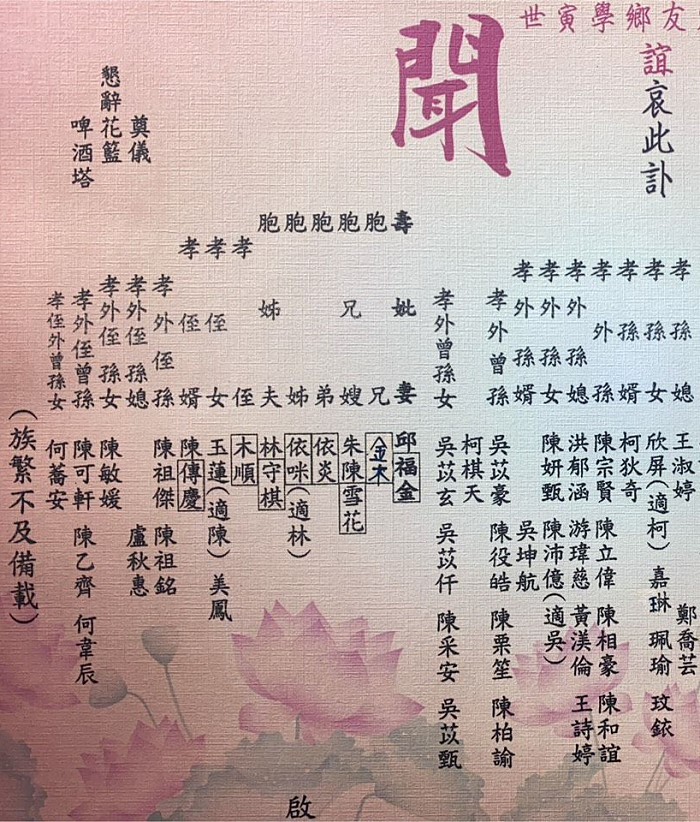 友鄉學寅世
誼哀此訃
聞
孝孫媳 王淑婷 鄭喬芸
孝孫女 欣屏(適柯) 嘉琳 珮瑜 玟銥
孝孫婿 柯狄奇
孝外孫 陳宗賢 陳立偉 陳相豪 陳和誼
孝外孫媳 洪郁涵 游瑋慈 黃渼倫 王詩婷
孝外孫女 陳妍甄 陳沛億(適吳)
孝外孫婿 吳坤航
孝外曾孫 吳苡豪 陳役皓 陳栗笙 陳柏諭
柯棋天
孝外曾孫女 吳苡玄 吳苡仟 陳采安 吳苡甄
壽妣妻 邱福金
胞兄 金木
胞兄嫂 朱陳雪花
胞弟 依炎
胞姊 依咪(適林)
胞姊夫 林守棋
孝侄 木順
孝侄女 玉蓮(適陳) 美鳳
孝侄婿 陳傳慶
孝外侄孫 陳祖傑 陳祖銘
孝外侄孫媳 盧秋惠
孝外侄孫女 陳敏媛
孝外侄曾孫 陳可軒 陳乙齊 何韋辰
孝侄外曾孫女 何蕎安
(族繁不及備載)
奠儀
懇辭花籃
啤酒塔
啟